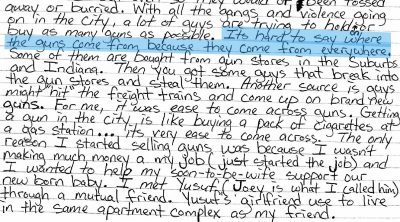 they would of been tossed
away or buried. With all the gangs and violence going
on in the City, a lot of guys are trying to hold or
buy as many guns as possible. Its hard to say where
the guns come from because they come from everywhere.
Some of them are bought from gun stores in the Suburbs
and Indiana. Then you got some guys that break into
the gun stores and steal them. Another source is guys
might hit the freight trains and come up on brand new
guns. For me, it was ease to come across guns. Getting
a gun in the city is like buying a pack of cigarettes at
a gas station... Its very ease to come across. The only
reason I started selling guns was because I wasn't
making much money a my job (I just started the job) and
I wanted to help my soon-to-be-wife support our
new born baby. I met Yusuf (Joey is what I called him)
through a mutual friend. Yusuf's girlfriend use to live
in the same apartment complex as my friend.